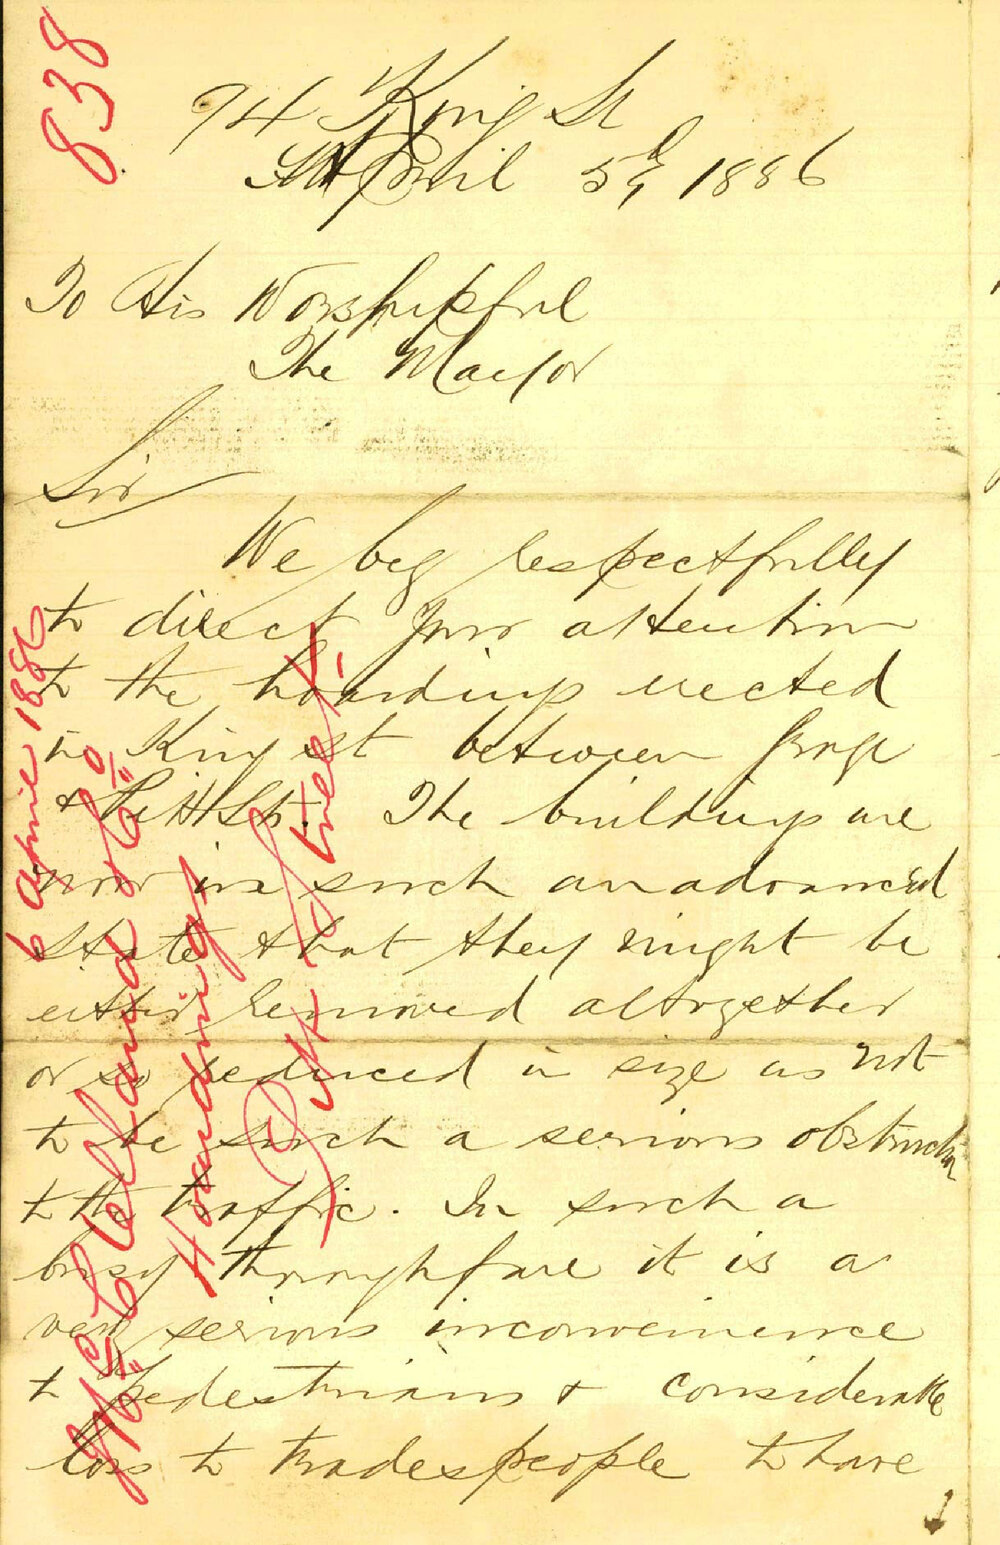 94 King St
April 5th, 1886
To His Worshipful
The Mayor
Sir
We beg respectfully
to direct your attention
to the hoardings erected
in King St between George
& Pitt Sts. The buildings are
now in such an advanced
state that they might be
either removed altogether
or so reduced in size as not
to be such a serious obstruction
to the traffic. In such a
busy thoroughfare it is a
very serious inconvenience
to pedestrians & considerable
loss to tradespeople to have
838
6 April 1886
McClelland & Co
Hoardings
Pitt Street